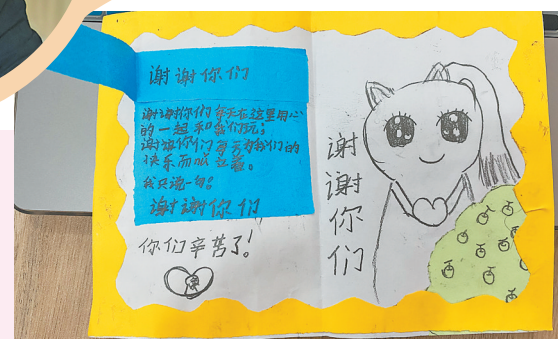 谢谢你们
谢谢你们每天在这里用心
的一起和我们玩；
谢谢你们每天为我们的
快乐而
我只说一句：
谢谢你们
你们辛苦了！
谢
谢
你
们